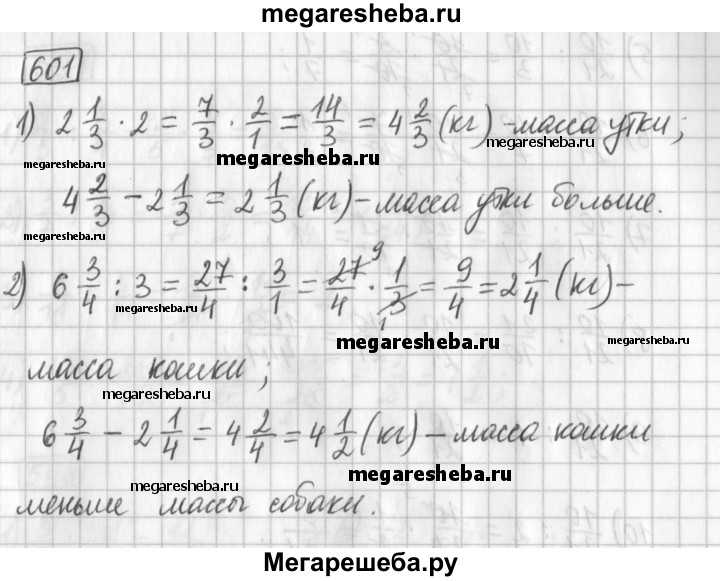 megaresheba.ru
601
1) 2 1/3 · 2 = 7/3 · 2/1 = 14/3 = 4 2/3 (кг) - масса утки;
megaresheba.ru megaresheba.ru
4 2/3 - 2 1/3 = 2 1/3 (кг) - масса утки больше.
megaresheba.ru
2) 6 3/4 : 3 = 27/4 : 3/1 = 27/4 9 · 1/3 1 = 9/4 = 2 1/4 (кг) -
megaresheba.ru
megaresheba.ru
масса кошки;
megaresheba.ru
6 3/4 - 2 1/4 = 4 2/4 = 4 1/2 (кг) - масса кошки
megaresheba.ru
megaresheba.ru
меньше массы собаки.
Мегарешеба.ру